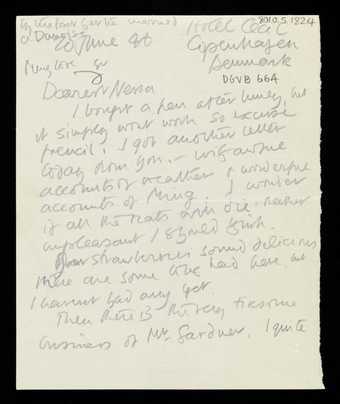 8010.5.1824
Hotel Cecil
20 June
Copenhagen
Denmark
DGVB 664
Dearest Nessa
I bought a pen after lunch, but
it simply wont work so excuse
pencil. I got another letter
today from you – with awful
accounts of weather & wonderful
accounts of Ming. I wonder
if all the rats will die. rather
unpleasant I should think.
Your strawberries sound delicious
there are some like here, but
I havent had any yet.
Then there is the very tiresome
business of Mr Gardner. I quite